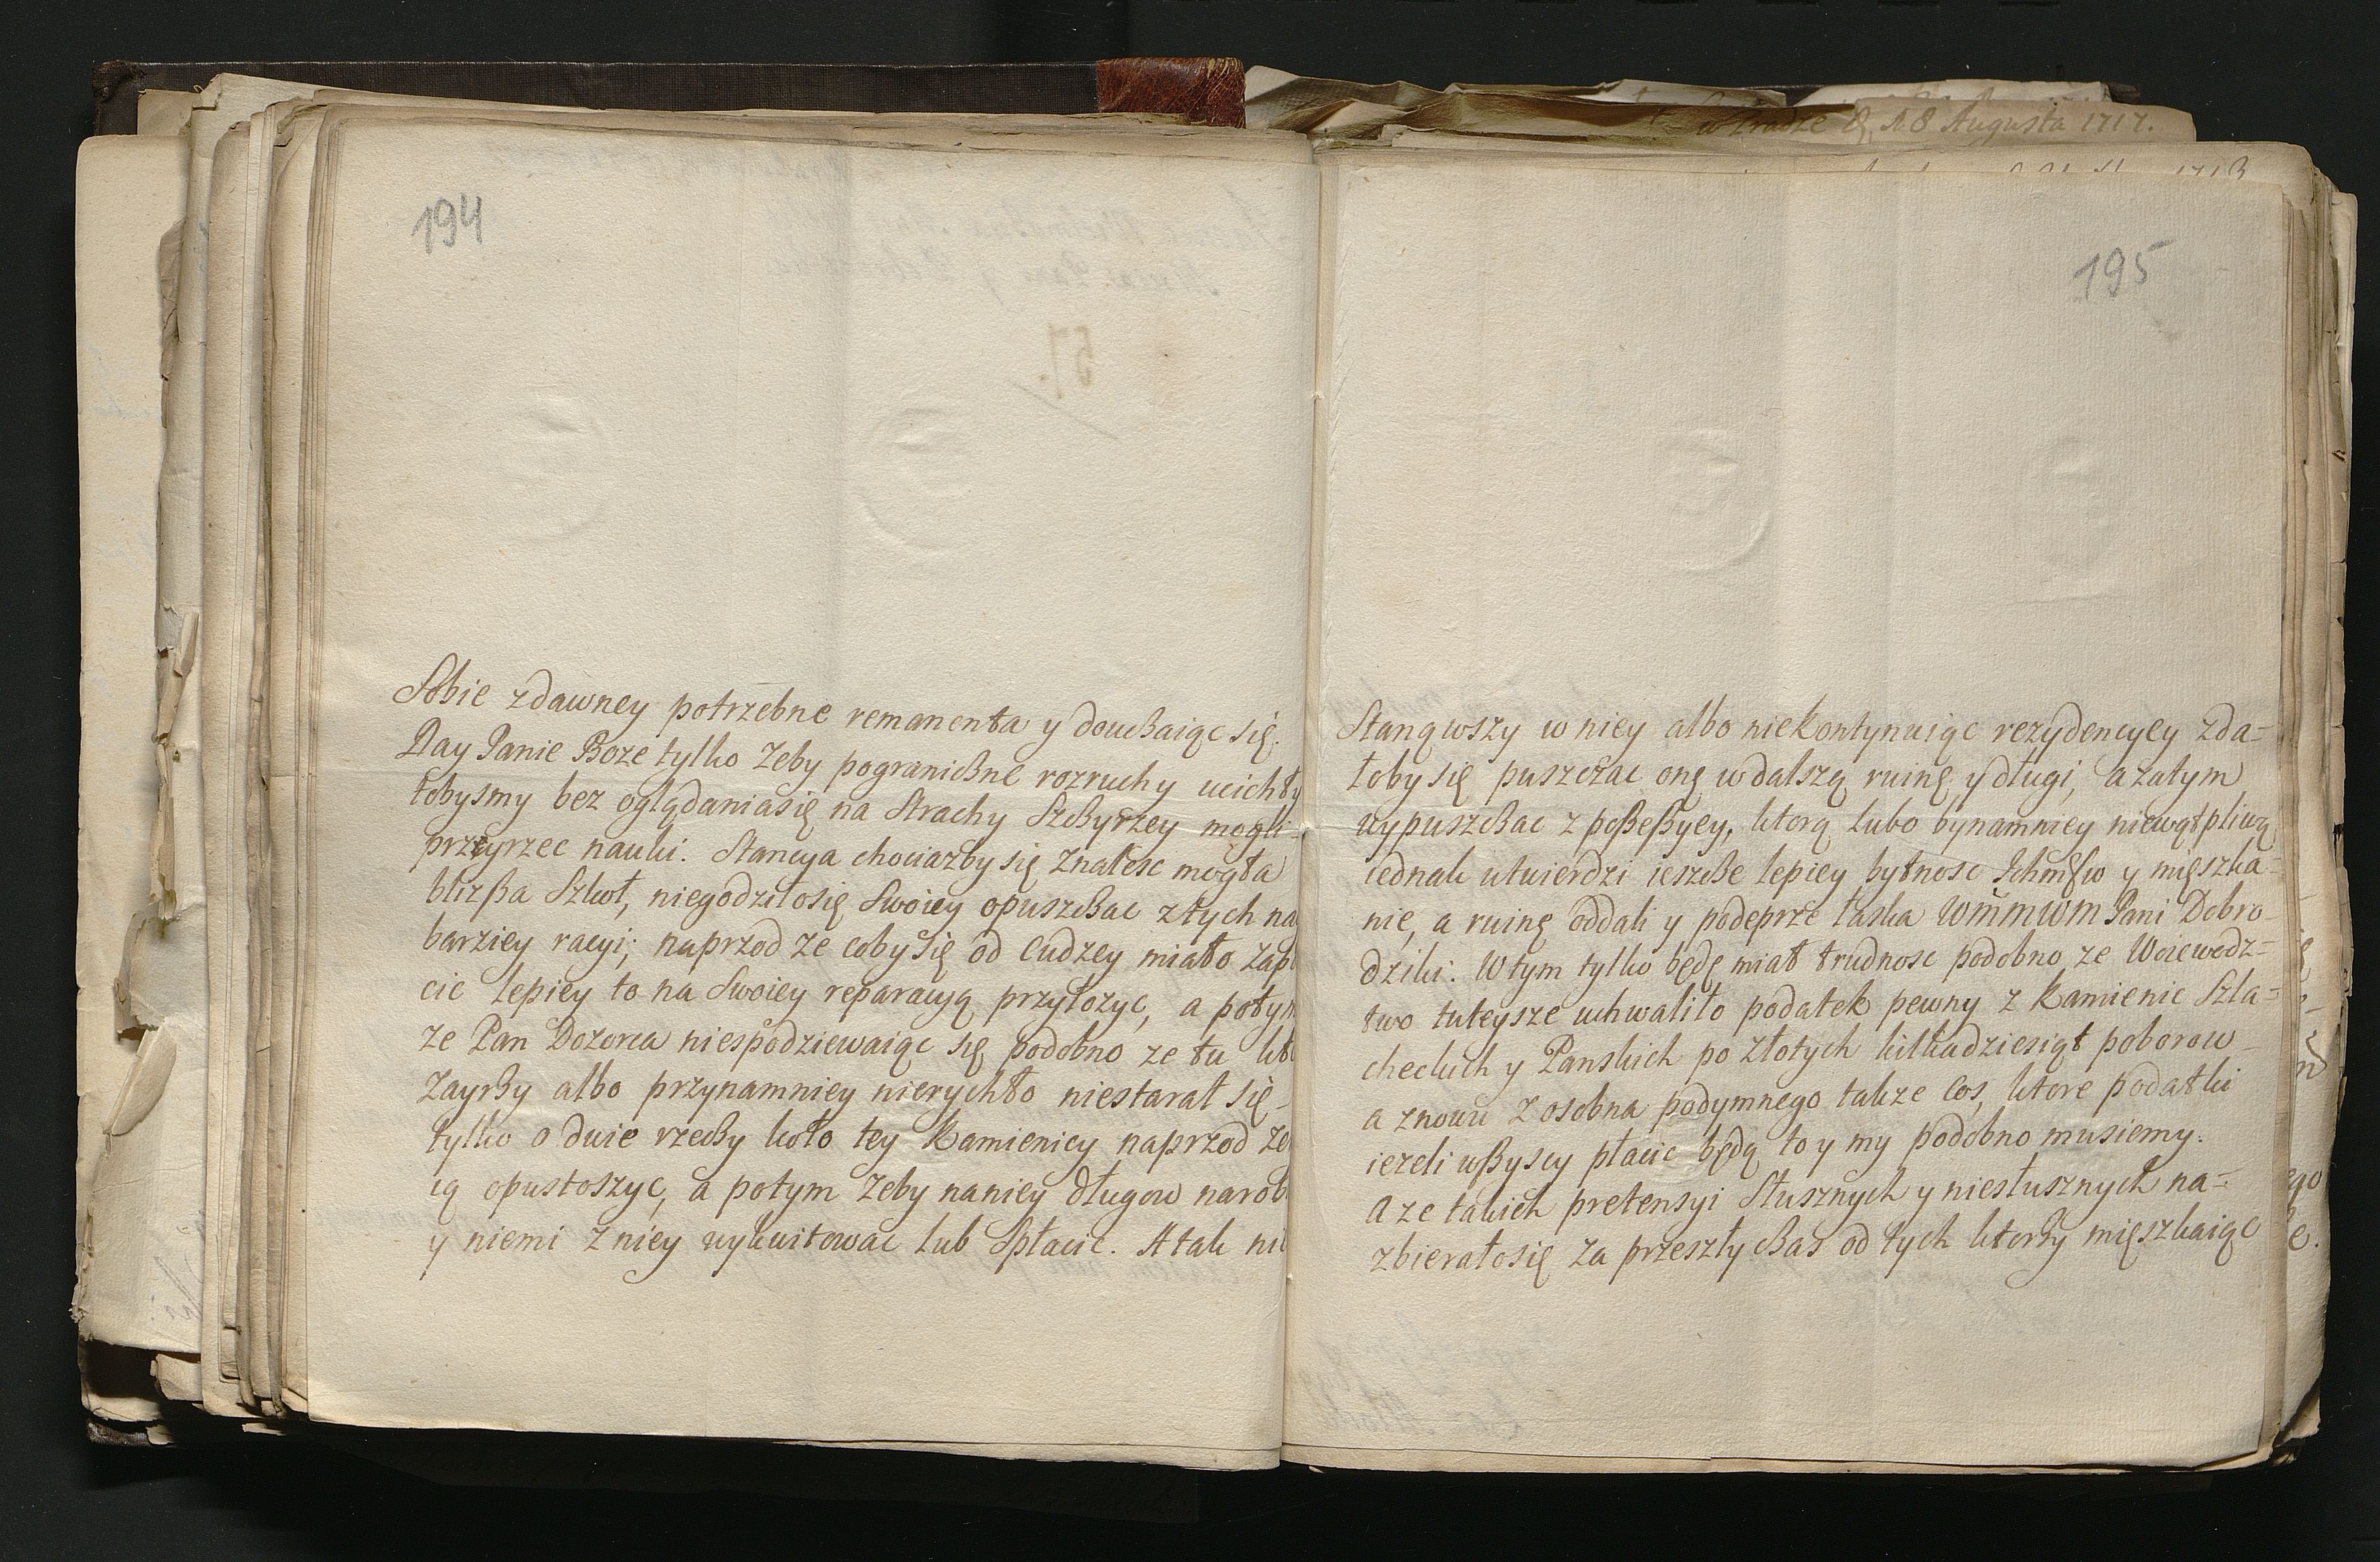 194
Sobie zdawney potrzebne remanenta y douczaiąc się.
Day Panie Boze tylko zeby pograniczne rozruchy ucichły
tobysmy bez oglądaniasię na Strachy Szczyrzey mogli
przyrzec nauki. Stancya chociazby się znalesc mogła
blizsza Szkoł, niegodziłosię Swoiey opuszczac z tych na
barziey racyi; naprzod ze coby się od cudzey miało zap
cic lepiey to na Swoiey reparacyą przyłozyc, a potym
ze Pan Dozorca niespodziewaiąc się podobno ze tu kto
zayrzy albo przynamniey nierychło niestarał się
tylko o dwie rzeczy koło tey Kamienicy naprzod ze
ią opustoszyc, a potym zeby naniey długow narob
y niemi z niey wykwitowac lub Spłacic. A tak ni
195
Stanąwszy w niey albo niekontynuiąc rezydencyey zda=
łoby się puszczac onę wdalszą ruinę y długi, a zatym
wypuszczac z possessyey, ktorą lubo bynamniey niewątpliwą
iednak utwierdzi ieszcze lepiey bytnosc y mięszka=
nie, a ruinę oddali y podeprze łaska WMMWM Pani Dobro
dziki. W tym tylko będę miał trudnosc podobno ze Woiewodz=
two tuteysze uchwaliło podatek pewny z Kamienic Szla=
checkich y Panskich po złotych kilkadziesiąt poborow
a znowu z osobna podymnego takze cos, ktore podatki
iezeli wszyscy płacic będą to y my podobno musiemy.
A ze takich pretensyi Słusznych y niesłusznych na=
zbierałosię za przeszły czas od tych ktorzy mięszkaiąc
8 Augusta 1717.